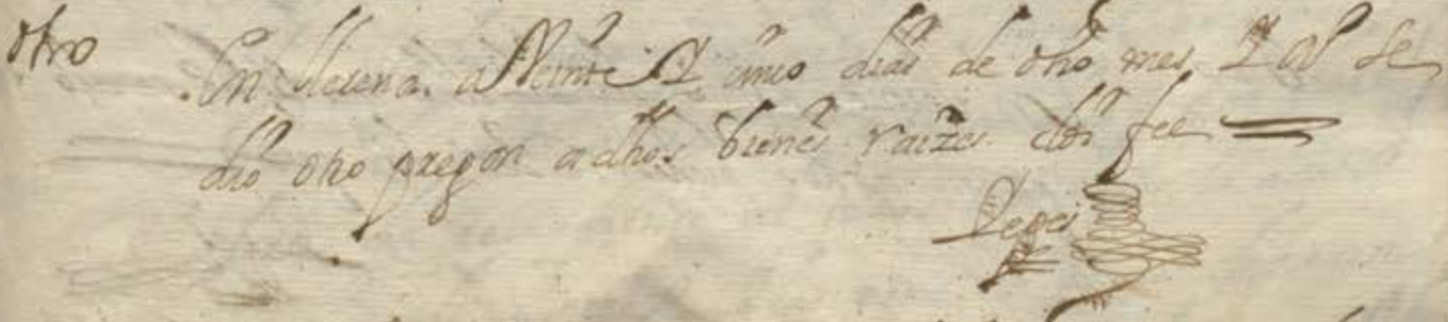 otro
En llerena. a Veinte Y cinco dias de dho mes Y año se
dio otro pregon a dhos bienes raizes doi fee